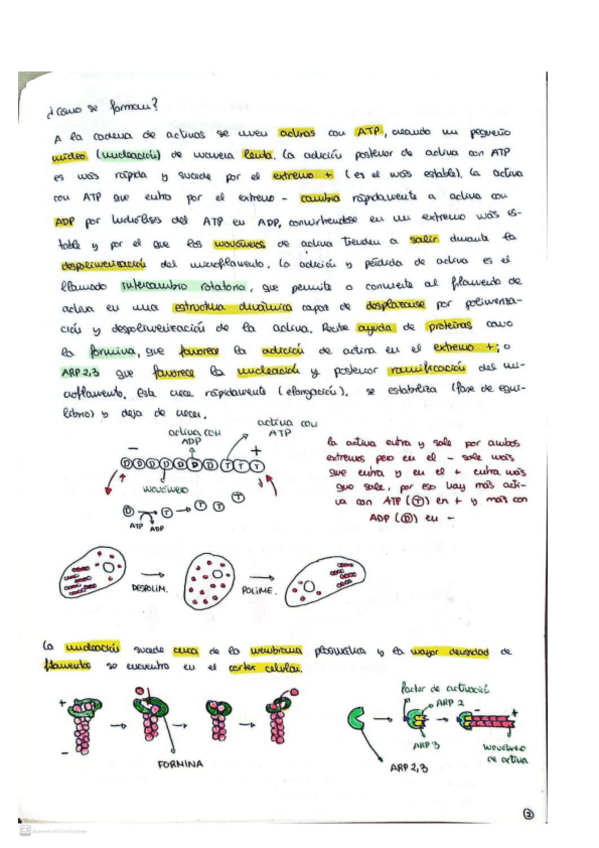 ¿Cómo se forman?
A la cadena de activas se unen activas con ATP, creando un pequeño
núcleo (nucleación) de manera lenta. La adición posterior de activa con ATP
es más rápida y sucede por el extremo + (es el más estable). La activa
con ATP que entra por el extremo - cambia rápidamente a activa con
ADP por hidrólisis del ATP en ADP, convirtiéndose en un extremo más es-
table y por el que los monómeros de activa tienden a salir durante la
despolimerización del microfilamento. La adición y pérdida de activa es el
llamado intercambio rotatorio, que permite o convierte al filamento de
activa en una estructura dinámica capaz de desplazarse por polimeriza-
ción y despolimerización de la activa. Recibe ayuda de proteínas como
la formina, que favorece la adición de actina en el extremo +; o
ARP2,3 que favorece la nucleación y posterior ramificación del mi-
crofilamento. Este crece rápidamente (elongación), se estabiliza (fase de equi-
librio) y deja de crecer.
activa con
ADP
activa con
ATP
- +
D D D D D D D T T T
monómero
D → T → T T T
ATP ADP
la activa entra y sale por ambos
extremos pero en el - sale más
que entra y en el + entra más
que sale, por eso hay más acti-
va con ATP (T) en + y más con
ADP (D) en -
DESPOLIM. POLIME.
La nucleación sucede cerca de la membrana plasmática y la mayor densidad de
filamentos se encuentra en el cortex celular.
+
-
FORMINA
Factor de activación
ARP 2
- +
ARP 3
monómero
de activa
ARP 2,3
2
CS Scanned with CamScanner